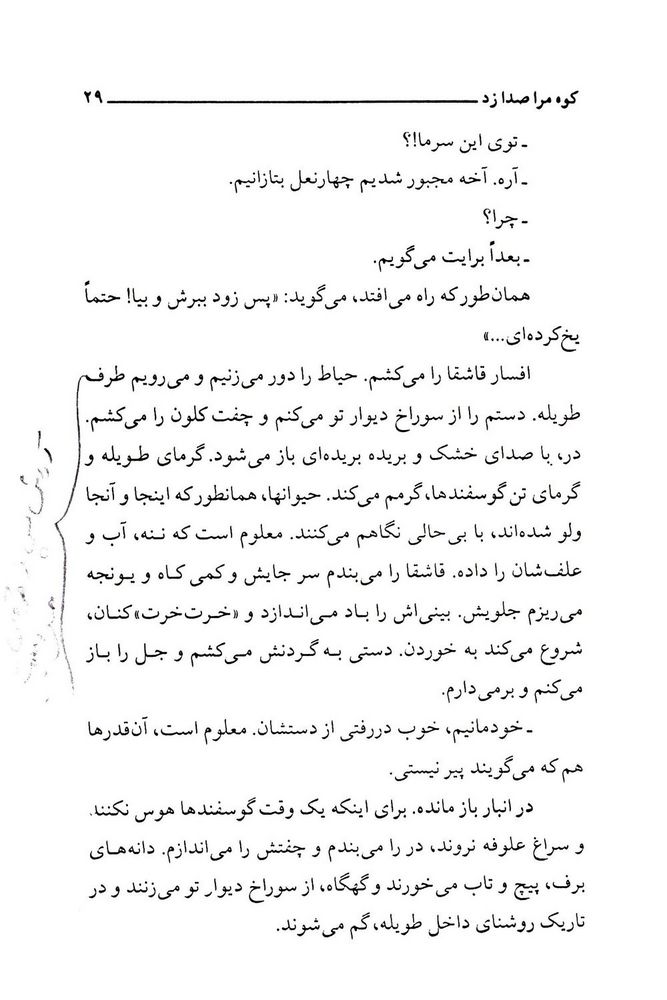 کوه مرا صدا زد ــــــــــــــــــــ ۲۹
ـ توی این سرما!؟
ـ آره. آخه مجبور شدیم چهارنعل بتازانیم.
ـ چرا؟
ـ بعداً برایت می‌گویم.
همان‌طور که راه می‌افتد، می‌گوید: «پس زود ببرش و بیا! حتماً
یخ کرده‌ای...»
افسار قاشقا را می‌کشم. حیاط را دور می‌زنیم و می‌رویم طرف
طویله. دستم را از سوراخ دیوار تو می‌کنم و چفت کلون را می‌کشم.
در، با صدای خشک و بریده بریده‌ای باز می‌شود. گرمای طویله و
گرمای تن گوسفندها، گرمم می‌کند. حیوانها، همانطور که اینجا و آنجا
ولو شده‌اند، با بی‌حالی نگاهم می‌کنند. معلوم است که ننه، آب و
علف‌شان را داده. قاشقا را می‌بندم سر جایش و کمی کاه و یونجه
می‌ریزم جلویش. بینی‌اش را باد می‌اندازد و «خرت‌خرت»کنان،
شروع می‌کند به خوردن. دستی به گردنش می‌کشم و جل را باز
می‌کنم و برمی‌دارم.
ـ خودمانیم، خوب دررفتی از دستشان. معلوم است، آن‌قدرها
هم که می‌گویند پیر نیستی.
در انبار باز مانده. برای اینکه یک وقت گوسفندها هوس نکنند
و سراغ علوفه نروند، در را می‌بندم و چفتش را می‌اندازم. دانه‌های
برف، پیچ و تاب می‌خورند و گهگاه، از سوراخ دیوار تو می‌زنند و در
تاریک روشنای داخل طویله، گم می‌شوند.